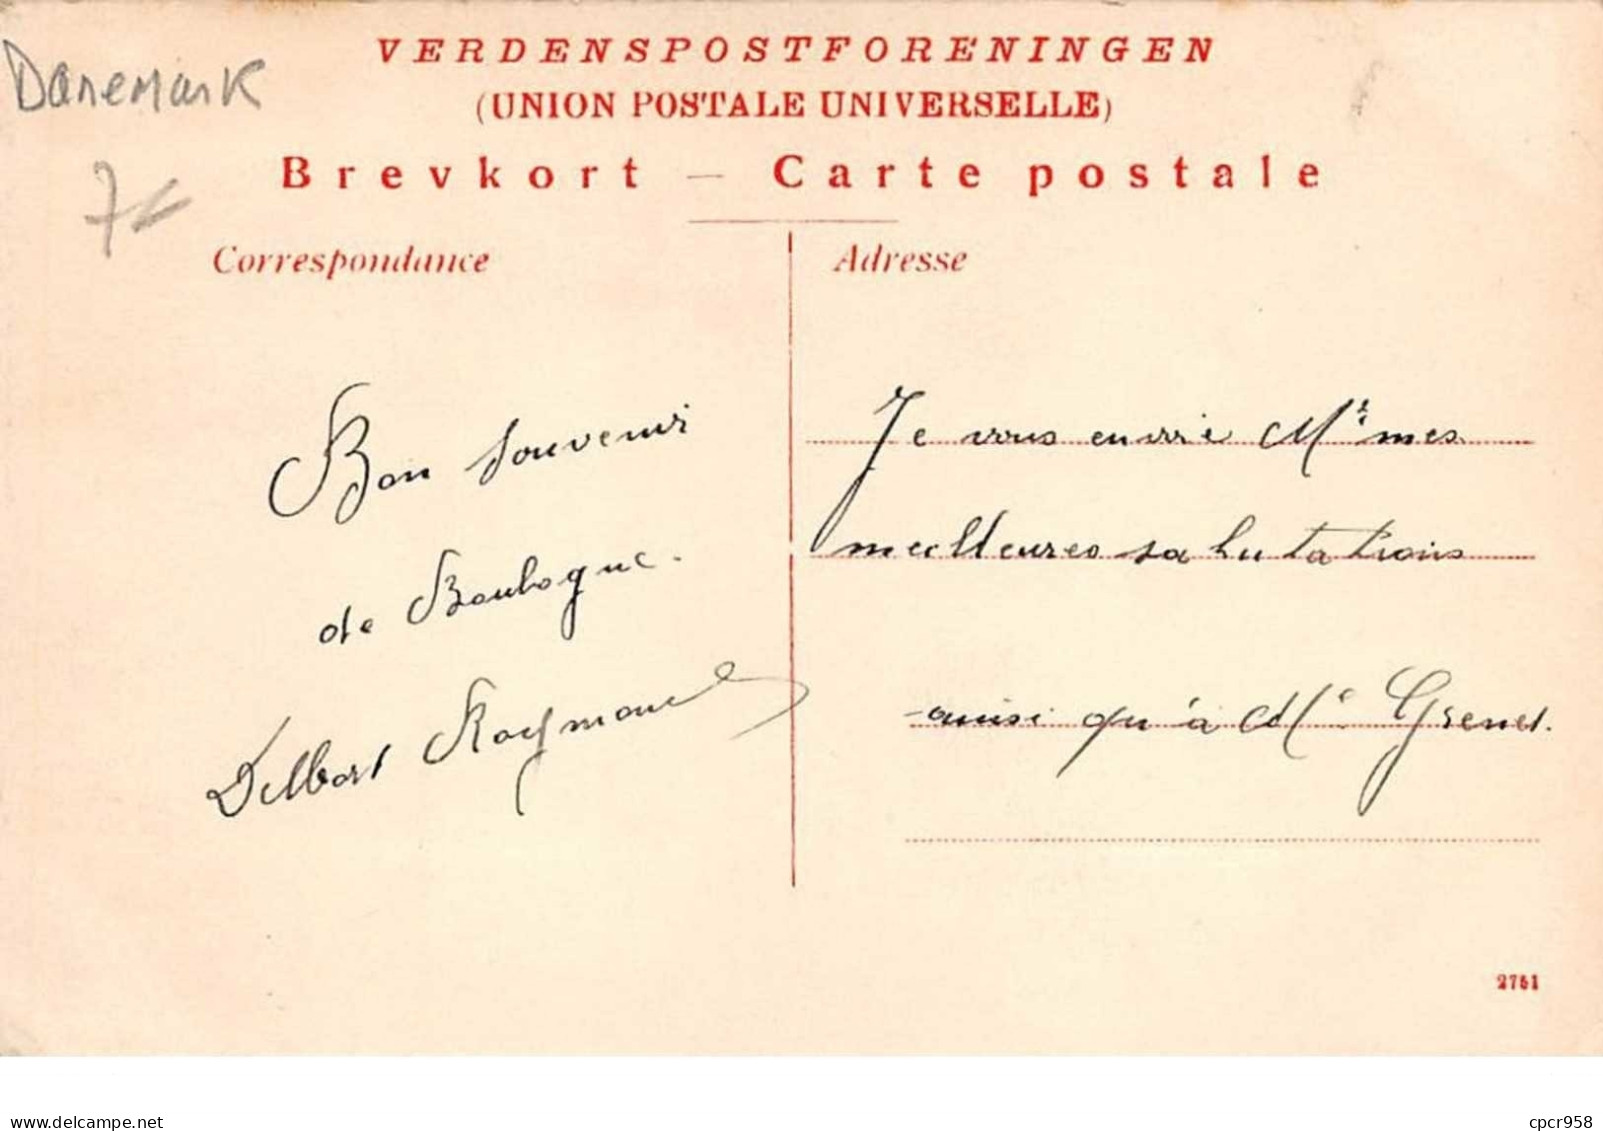 Danemark
7
VERDENSPOSTFORENINGEN
(UNION POSTALE UNIVERSELLE)
Brevkort — Carte postale
Correspondance
Bon souvenir
de Boulogne.
Delbart Raymond
Adresse
Je vous envoie Mr mes
meilleures salutations
ainsi qu'à Me Grenet.
2751
delcampe.net
cpcr958